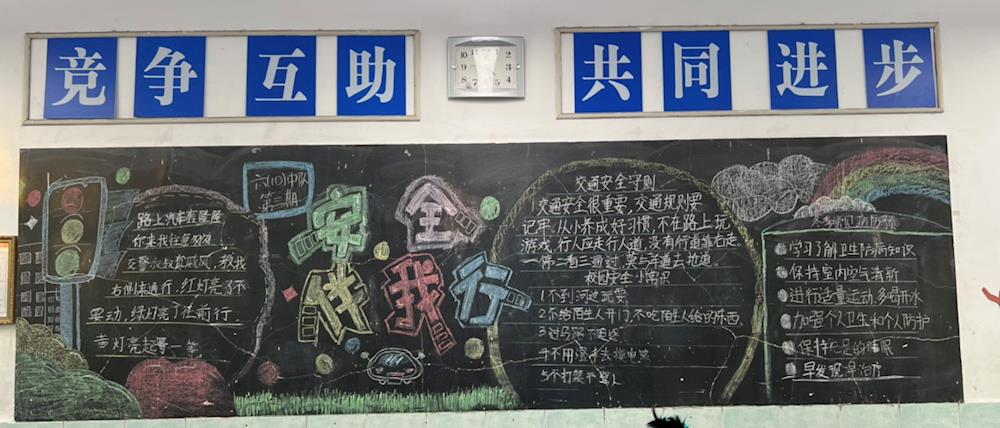 竞争互助
共同进步
六(10)中队
第三期
安全伴我行
路上汽车声星星
你来我往急匆匆
交警叔叔真威风,教我
右侧来通行,红灯亮了不
要动,绿灯亮了往前行
黄灯亮起等一等
交通安全守则
交通安全很重要,交通规则要
记牢,从小养成好习惯,不在路上玩
游戏,行人应走行人道,没有行道靠右走
一停二看三通过,莫与车道去抢道
校园安全小常识
1不到河边玩耍
2不给陌生人开门,不吃陌生人给的东西
3过马路不追逐
4不用湿手去摸电器
5不打架不骂人
学习了解卫生防病知识
保持室内空气清新
进行适量运动,多喝开水
加强个人卫生和个人防护
保持充足的睡眠
早发现早治疗